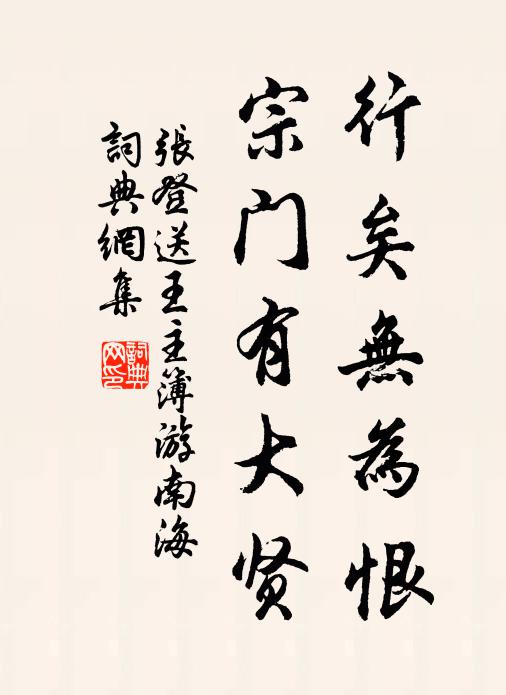 行矣無為恨
宗门有大贤
張登送王主簿游南海
詞典網集
詞典网印